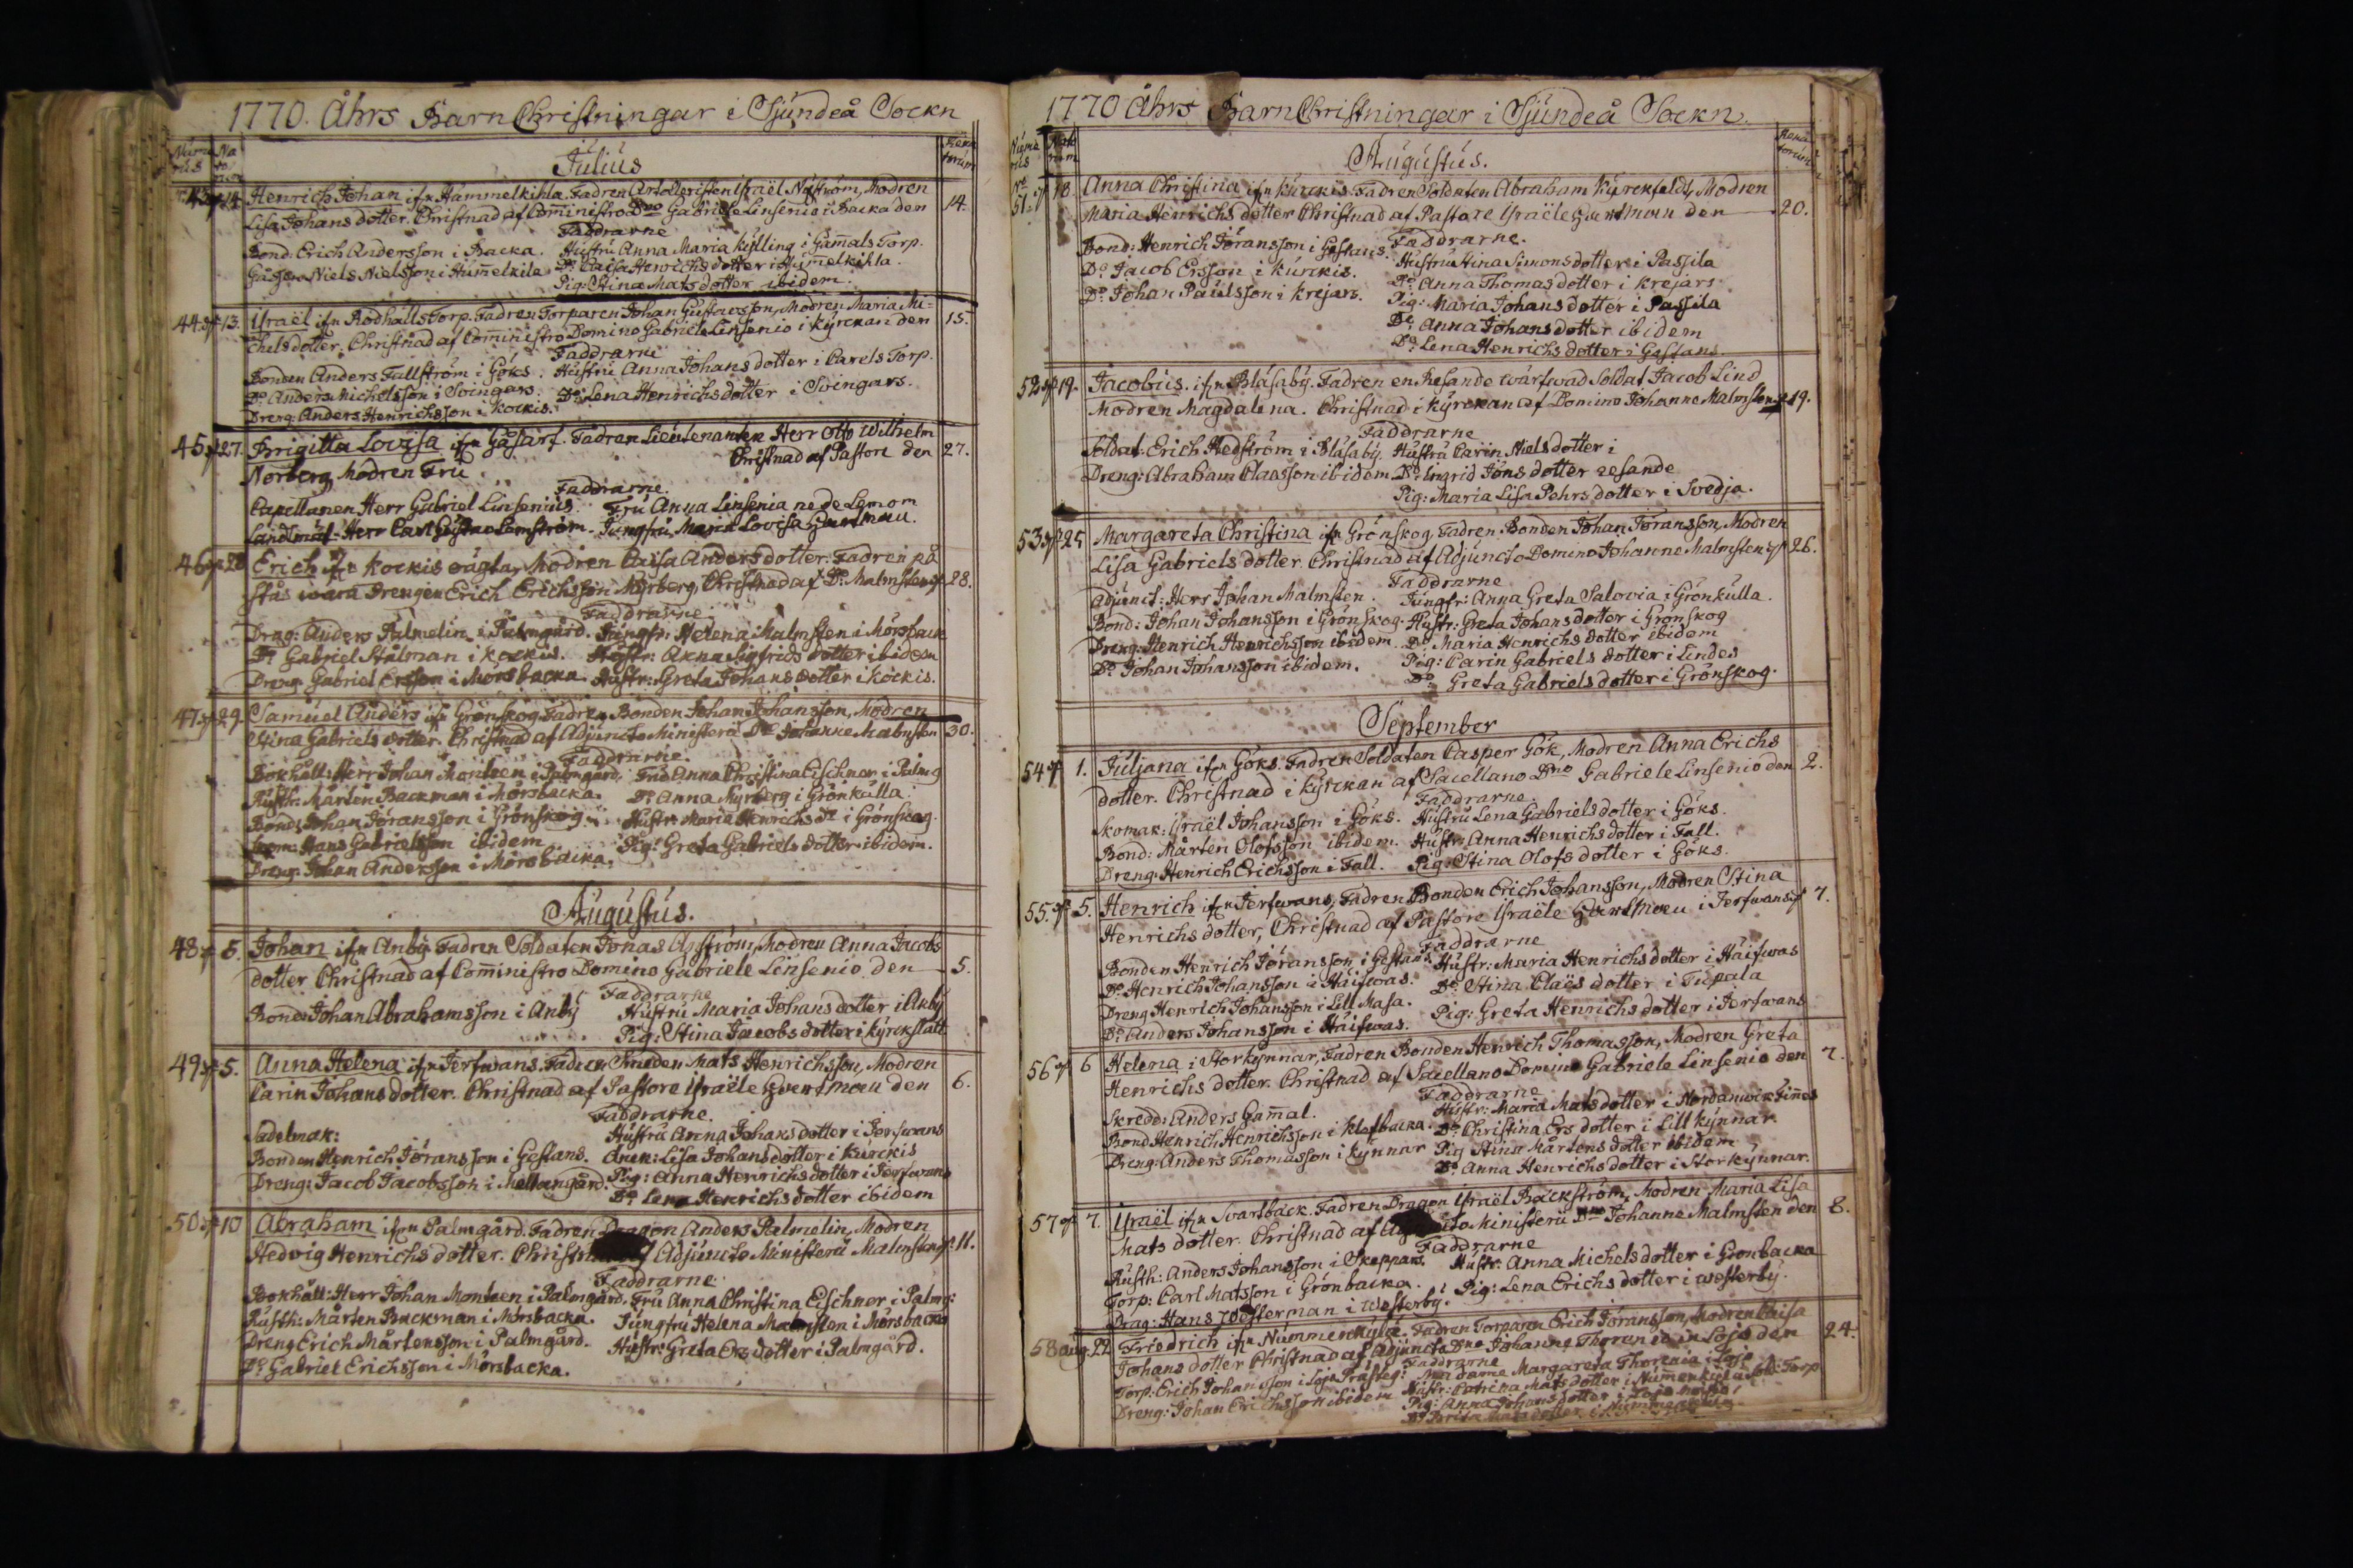 1770. Åhrs Barn Christningar i Sjundeå Sockn
Numerus Natorum Renatorum
Julius
43 14. Henrich Johan ifrn Hummelkihla. Fadren Artolleristen Israël Nyström, Modren 14.
Lisa Johans dotter. Christnad af Comministro Dno Gabriele Linsenio i Backa den
Faddrarne
Bond. Erich Andersson i Backa. Hustru Anna Maria Kylling i Gamals Torp.
Niels Nielsson i Humelkila Do Caisa Henrichs dotter i Humelkihla.
Pig: Stina Mats dotter ibidem.
44 13. Israël ifrn Rödhälls Torp. Fadren Torparen Johan Gustavsson, Modren Maria Mi= 15.
chels dotter. Christnad af Comministro Domino Gabriele Linsenio i Kyrckan den
Faddrarne
Bonden Anders Fallström i Göks. Hustru Anna Johans dotter i Carels Torp.
Do Anders Michelsson i Svingars. Do Lena Henrichs dotter i Svingars.
Dreng: Anders Henrichsson i Kockis.
45 27. Brigitta Lovisa ifrn Gåsarf. Fadren Lieutenanten Herr Otto Wilhelm
Norberg, Modren Fru Christnad af Pastore den 27.
Faddrarne
Capellanen Herr Gabriel Linsenius. Fru Anna Linsenia nede Lemon
Landtmät: Herr Carl Gustav Lemström. Jungfru Maria Lovisa
46 28 Erich ifrn Kockis oägta, Modren Caisa Anders dotter. Fadren på
stås wara Drengen Erich Erichsson Myrberg, Christnad af Do Malmsten 28.
Faddrarne
Drag: Anders Palmelin i Palmgård. Jungfr: Helena Malmsten i Mörsback
Do Gabriel Stålman i Kockis. Hustr: Anna Sigfrids dotter ibidem
Dreng Gabriel Ersson i Mörsbacka Hustr: Greta Johans dotter i Kockis.
47 29. Samuel Anders ifrn Grönskog. Fadren Bonden Johan Johansson, Modren
Stina Gabriels dotter. Christnad af Adjuncto Ministerii Dno Johanne Malmsten 30.
Faddrarne.
Bokhåll: Herr Johan Monteen i Palmgård, Fru Anna Christina Eischner i Palmg
Rusth: Mårten Backman i Mörsbacka. Do Anna Myrberg i Grönkulla.
Bond: Johan Jöransson i Grönskog. Hustr: Maria Henrichs dr i Grönskog.
Hans Gabrielsson ibidem Pig: Greta Gabriels dotter ibidem.
Dreng: Johan Andersson i Mörsbacka.
Augustus.
48 5. Johan ifrn Anby Fadren Soldaten Jonas Apström, Modren Anna Jacobs
dotter Christnad af Comministro Domino Gabriele Linsenio den 5.
Faddrarne
Bond: Johan Abrahamsson i Anby Hustru Maria Johans dotter i Anby
Pig: Stina Jacobs dotter i Kyrckslätt
49 5. Anna Helena ifrn Jerfwans. Fadren Smeden Mats Henrichsson, Modren
Carin Johans dotter. Christnad af Pastore Israële den 6.
Faddrarne.
Sadelmak: Hustru Anna Johans dotter i Jerfwans
Bonden Henrich Jöransson i Gestans. Lisa Johans dotter i Kurckis
Dreng: Jacob Jacobsson i Mellangård. Pig: Anna Henrichs dotter i Jerfwans
Do Lena Henrichs dotter ibidem
50 10 Abraham ifrn Palmgård. Fadren Dragon Anders Palmelin, Modren
Hedvig Henrichs dotter. Adjuncto Ministerii Malmsten 11.
Faddrarne.
Bokhåll: Herr Johan Monteen i Palmgård. Fru Anna Christina Eischner i Palmg:
Rusth: Mårten Backman i Mörsbacka. Jungfru Helena Malmsten i Mörsbacka
Dreng Erich Mårtensson i Palmgård. Hustr: Greta Ers dotter i Palmgård.
Do Gabriel Erichsson i Mörsbacka.
1770 Åhrs Barn Christningar i Sjundeå Sockn.
Numerus Natorum Renatorum
Augustus.
No 51 18. Anna Christina ifrn Kurckis. Fadren Soldaten Abraham Kyrckfeldt, Modren
Maria Henrichs dotter Christnad af Pastore Israële den 20.
Faddrarne.
Bond: Henrich Jöransson i Gestans. Hustru Stina Simons dotter i Passila
Do Jacob Ersson i Kurckis. Do Anna Thomas dotter i Krejars
Do Johan Paulsson i Krejars. Pig: Maria Johans dotter i Passila
Do Anna Johans dotter ibidem
Do Lena Henrichs dotter i Gestans.
52 19. Jacobus. ifrn Blåsaby. Fadren en Resande wärfwad Soldat Jacob Lind
Modren Magdalena. Christnad i Kyrckan af Domino Johanne Malmsten 19.
Faddrarne
Soldat: Erich Hedström i Blåsaby. Hustru Carin Niels dotter i
Dreng: Abraham Claasson ibidem. Do Ingrid Jöns dotter resande
Pig: Maria Lisa Pehrs dotter i Svedja.
53 25 Margareta Christina ifrn Grönskog, Fadren Bonden Johan Jöransson, Modren
Lisa Gabriels dotter. Christnad af Adjuncto Domino Johanne Malmsten 26.
Faddrarne
Adjunct: Herr Johan Malmsten. Jungfr: Anna Greta Salovia i Grönkulla.
Bond: Johan Johansson i Grönskog. Hustr: Greta Johans dotter i Grönskog
Dreng: Henrich Henrichsson ibidem. Do Maria Henrichs dotter ibidem
Do Johan Johansson ibidem. Pig: Carin Gabriels dotter i Lindes
Do Greta Gabriels dotter i Grönskog.
September
54 1. Juljana ifrn Göks. Fadren Soldaten Casper Gök, Modren Anna Erichs
dotter. Christnad i Kyrckan af Sacellano Dno Gabriele Linsenio den 2.
Faddrarne.
Skomak: Israël Johansson i Göks. Hustru Lena Gabriels dotter i Göks.
Bond: Mårten Olofsson ibidem. Hustr: Anna Henrichs dotter i Fall.
Dreng: Henrich Erichsson i Fall. Pig: Stina Olofs dotter i Göks.
55. 5. Henrich ifrn Jerfwans, Fadren Bonden Erich Johansson, Modren Stina
Henrichs dotter, Christnad af Pastore Israële i Jerfwans 7.
Faddrarne
Bonden Henrich Jöransson i Gestans. Hustr: Maria Henrichs dotter i Häifwas
Do Henrich Johansson i Häifwas. Do Stina Claës dotter i Tupala
Dreng Henrich Johansson i Lill Masa. Pig: Greta Henrichs dotter i Jerfwans
Do Anders Johansson i Häifwas.
56 6 Helena i Storkynnar, Fadren Bonden Henrich Thomasson, Modren Greta
Henrichs dotter. Christnad af Sacellano Domino Gabriele Linsenio den 7.
Faddrarne
Skredd: Anders Gamal. Hustr: Maria Mats dotter i Nordanwik
Bond Henrich Henrichsson i Klefbacka. Do Christina Ers dotter i Lill Kynnar.
Dreng: Anders Thomasson i Kynnar Pig Stina Mårtens dotter ibidem
Do Anna Henrichs dotter i Storkynnar.
57 7. Israël ifrn Svartbäck. Fadren Dragon Israël Backström, Modren Maria Lisa
Mats dotter. Christnad af Ministerii Dno Johanne Malmsten den 8.
Faddrarne
Rusth: Anders Johansson i Skeppars. Hustr: Anna Michels dotter i Grönbacka
Torp: Carl Matsson i Grönbacka. Pig: Lena Erichs dotter i Westerby.
Drag: Hans Wösterman i Westerby.
58 Aug. 22 Friedrich ifrn Nummenkylä. Fadren Torparen Erich Jöransson, Modren Caisa
Johans dotter Christnad af Adjuncto Dno Johanne Thorenio i Lojo den 24.
Faddrarne
Torp: Erich Johansson i Lojo Prästeg: Madame Margareta Thorenia i Lojo
Dreng: Johan Erichsson ibidem Hustr: Catrina Mats dotter i Numenkylä Torp
Pig: Anna Johans dotter i Lojo